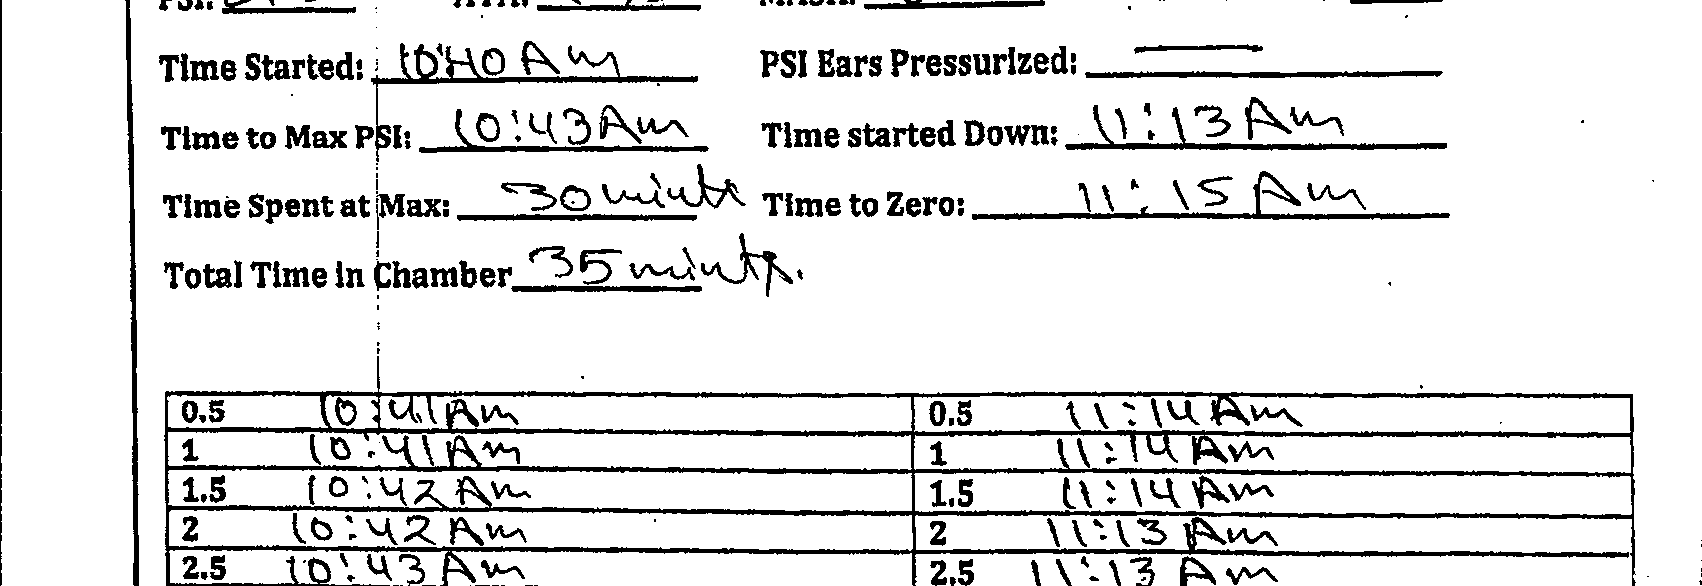 Time Started: 10:40 Am PSI Ears Pressurized: —
Time to Max PSI: 10:43 Am Time started Down: 11:13 Am
Time Spent at Max: 30 Time to Zero: 11:15 Am
Total Time in Chamber 35
0.5 10:41 Am 0.5 11:14 Am
1 10:41 Am 1 11:14 Am
1.5 10:42 Am 1.5 11:14 Am
2 10:42 Am 2 11:13 Am
2.5 10:43 Am 2.5 11:13 Am